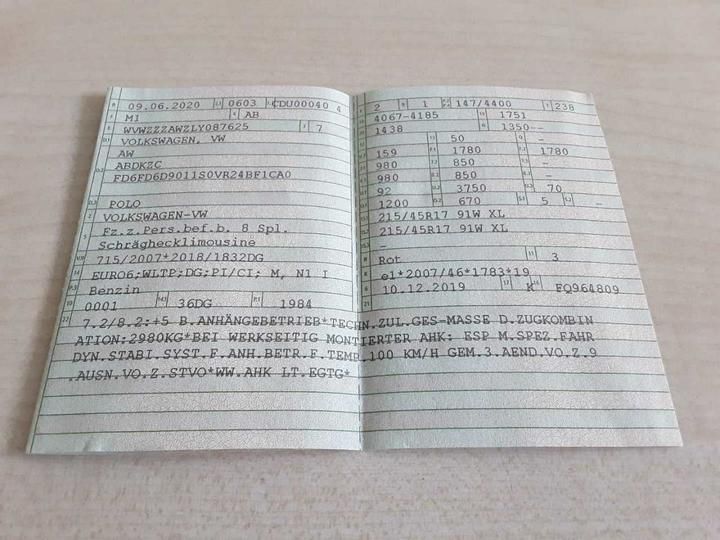 09.06.2020 0603 CDU00040 4
M1 AB
WVWZZZAWZLY087625 7
VOLKSWAGEN, VW
AW
ABDKZC
FD6FD6D9011S0VR24BF1CA0
POLO
VOLKSWAGEN-VW
Fz.z.Pers.bef.b. 8 Spl.
Schräghecklimousine
715/2007*2018/1832DG
EURO6;WLTP;DG;PI/CI; M, N1 I
Benzin
0001 36DG 1984
2 1 147/4400 238
4067-4185 1751
1438 1350--
50 -
159 1780 1780
980 850 -
980 850 -
92 3750 70
1200 670 5 -
215/45R17 91W XL
215/45R17 91W XL
-
Rot 3
e1*2007/46*1783*19
10.12.2019 K FQ964809
7.2/8.2:+5 B.ANHÄNGEBETRIEB*TECHN.ZUL.GES-MASSE D.ZUGKOMBIN
ATION:2980KG*BEI WERKSEITIG MONTIERTER AHK: ESP M.SPEZ.FAHR
DYN.STABI.SYST.F.ANH.BETR.F.TEMP.100 KM/H GEM.3.AEND.VO.Z.9
.AUSN.VO.Z.STVO*WW.AHK LT.EGTG*